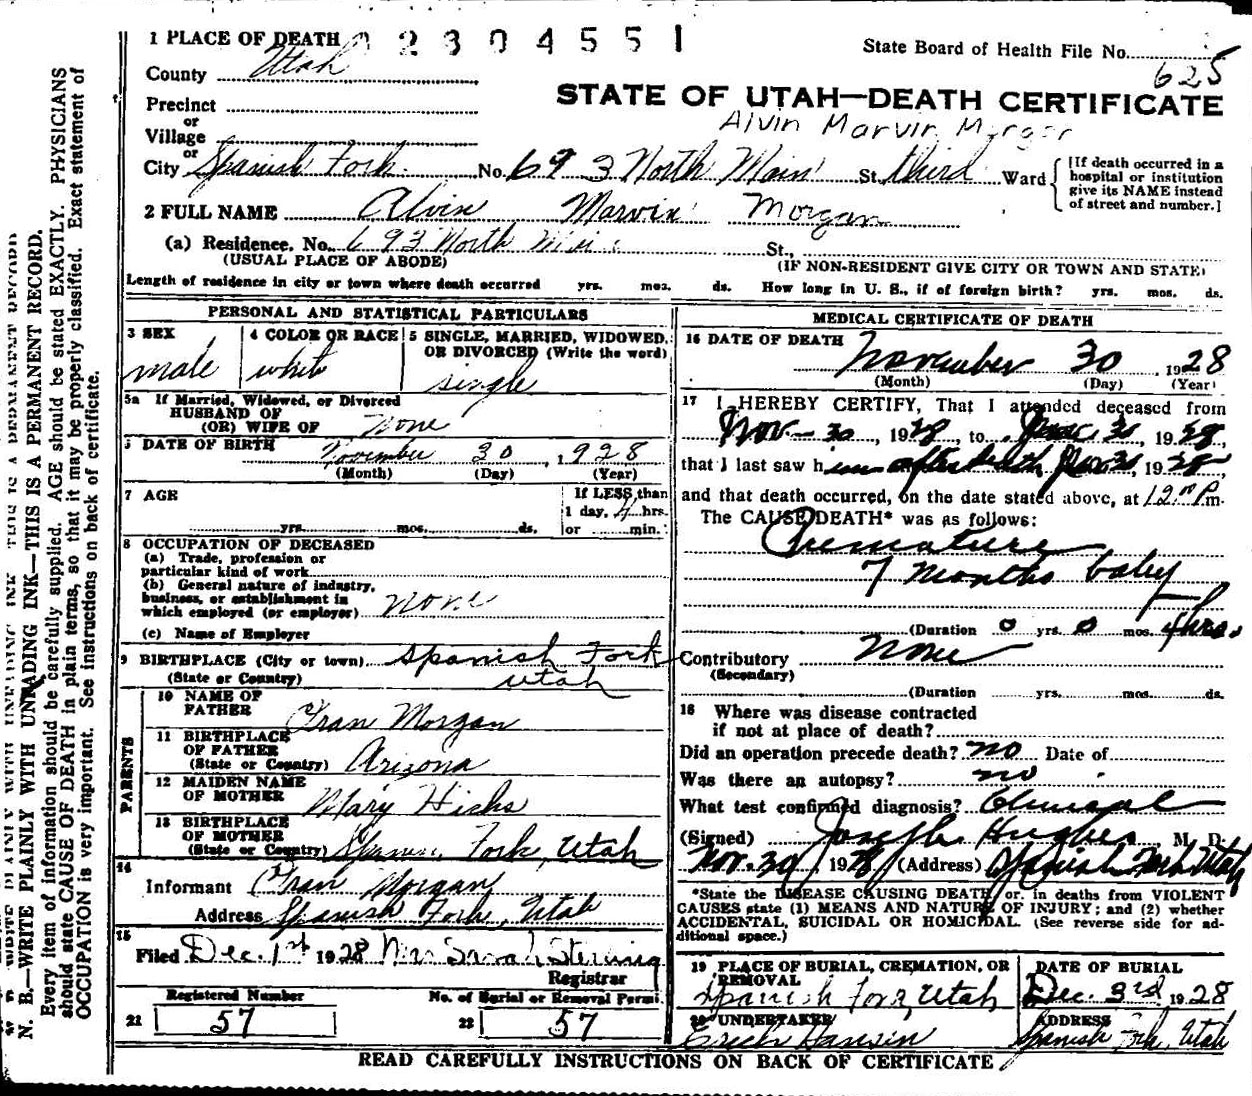 1 PLACE OF DEATH 02304551
State Board of Health File No. 625
County Utah
STATE OF UTAH—DEATH CERTIFICATE
Precinct
Alvin Marvin Morgan
or
Village
or
City Spanish Fork No. 693 North Main St. third Ward
[If death occurred in a hospital or institution give its NAME instead of street and number.]
2 FULL NAME Alvin Marvin Morgan
(a) Residence. No. 693 North Main St.,
(USUAL PLACE OF ABODE) (IF NON-RESIDENT GIVE CITY OR TOWN AND STATE)
Length of residence in city or town where death occurred yrs. mos. ds. How long in U. S., if of foreign birth? yrs. mos. ds.
PERSONAL AND STATISTICAL PARTICULARS
3 SEX male
4 COLOR OR RACE white
5 SINGLE, MARRIED, WIDOWED, OR DIVORCED (Write the word) single
5a If Married, Widowed, or Divorced
HUSBAND OF
(OR) WIFE OF None
6 DATE OF BIRTH November 30, 1928
(Month) (Day) (Year)
7 AGE yrs. mos. ds.
If LESS than
1 day, 4 hrs.
or min.
8 OCCUPATION OF DECEASED
(a) Trade, profession or
particular kind of work
(b) General nature of industry,
business, or establishment in
which employed (or employer) None
(c) Name of Employer
9 BIRTHPLACE (City or town) Spanish Fork
(State or Country) Utah
PARENTS
10 NAME OF
FATHER Fran Morgan
11 BIRTHPLACE
OF FATHER
(State or Country) Arizona
12 MAIDEN NAME
OF MOTHER Mary Hicks
13 BIRTHPLACE
OF MOTHER
(State or Country) Spanish Fork, Utah
14
Informant Fran Morgan
Address Spanish Fork, Utah
15
Filed Dec. 1st 1928 Mrs Sarah Sterling
Registrar
Registered Number
21 57
No. of Burial or Removal Permit
22 57
MEDICAL CERTIFICATE OF DEATH
16 DATE OF DEATH
November 30 1928
(Month) (Day) (Year)
17 I HEREBY CERTIFY, That I attended deceased from
Nov—30, 1928, to Nov 30, 1928
that I last saw him after death Nov 30, 1928
and that death occurred, on the date stated above, at 12 P m.
The CAUSE DEATH* was as follows:
Premature
7 months baby
(Duration 0 yrs. 0 mos. 4 hrs.
Contributory None
(Secondary)
(Duration yrs. mos. ds.
18 Where was disease contracted
if not at place of death?
Did an operation precede death? no Date of
Was there an autopsy? no
What test confirmed diagnosis? Clinical
(Signed) Joseph Hughes M. D.
Nov. 30, 1928 (Address) Spanish Fork Utah
*State the DISEASE CAUSING DEATH, or, in deaths from VIOLENT
CAUSES state (1) MEANS AND NATURE OF INJURY; and (2) whether
ACCIDENTAL, SUICIDAL OR HOMICIDAL. (See reverse side for ad-
ditional space.)
19 PLACE OF BURIAL, CREMATION, OR
REMOVAL
Spanish Fork, Utah
DATE OF BURIAL
Dec. 3rd 1928
20 UNDERTAKER
Erich Hansen
ADDRESS
Spanish Fork, Utah
READ CAREFULLY INSTRUCTIONS ON BACK OF CERTIFICATE
N. B.—WRITE PLAINLY WITH UNFADING INK—THIS IS A PERMANENT RECORD.
Every item of information should be carefully supplied. AGE should be stated EXACTLY. PHYSICIANS
should state CAUSE OF DEATH in plain terms, so that it may be properly classified. Exact statement of
OCCUPATION is very important. See instructions on back of certificate.